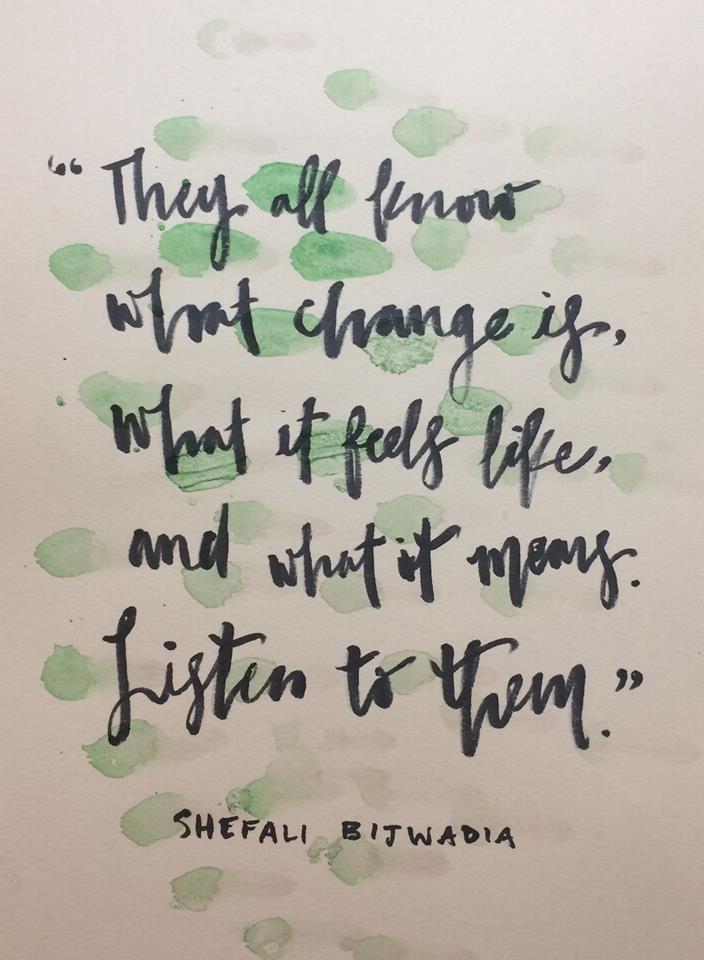 “They all know
what change is,
what it feels like,
and what it means.
Listen to them.”
SHEFALI BIJWADIA